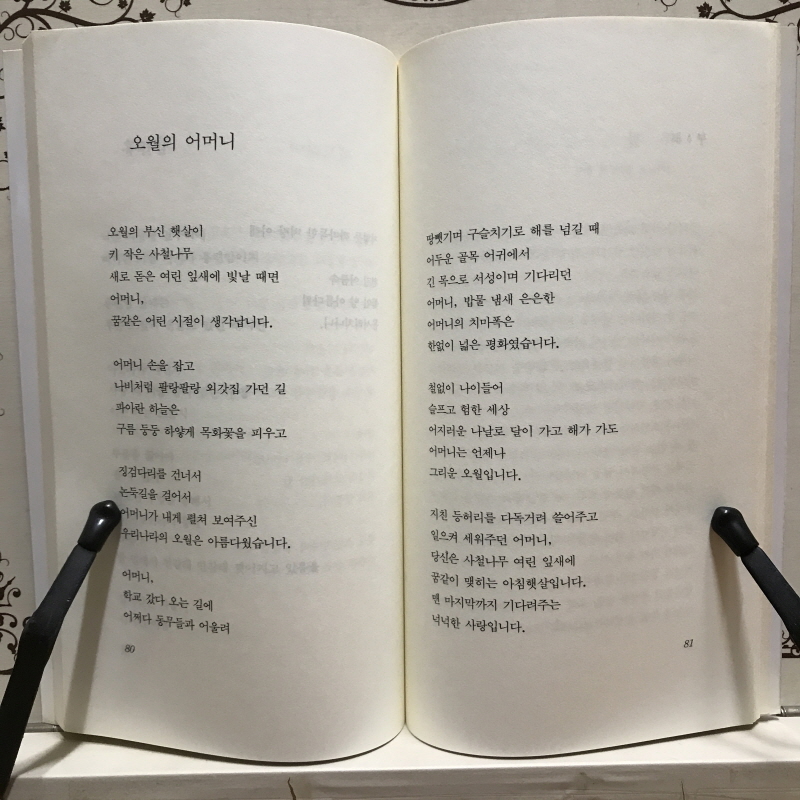 오월의 어머니
오월의 부신 햇살이
키 작은 사철나무
새로 돋은 여린 잎새에 빛날 때면
어머니,
꿈같은 어린 시절이 생각납니다.
어머니 손을 잡고
나비처럼 팔랑팔랑 외갓집 가던 길
파아란 하늘은
구름 둥둥 하얗게 목화꽃을 피우고
징검다리를 건너서
논둑길을 걸어서
어머니가 내게 펼쳐 보여주신
우리나라의 오월은 아름다웠습니다.
어머니,
학교 갔다 오는 길에
어쩌다 동무들과 어울려
80
땅뺏기며 구슬치기로 해를 넘길 때
어두운 골목 어귀에서
긴 목으로 서성이며 기다리던
어머니, 밥물 냄새 은은한
어머니의 치마폭은
한없이 넓은 평화였습니다.
철없이 나이들어
슬프고 험한 세상
어지러운 나날로 달이 가고 해가 가도
어머니는 언제나
그리운 오월입니다.
지친 등허리를 다독거려 쓸어주고
일으켜 세워주던 어머니,
당신은 사철나무 여린 잎새에
꿈같이 맺히는 아침햇살입니다.
맨 마지막까지 기다려주는
넉넉한 사랑입니다.
81